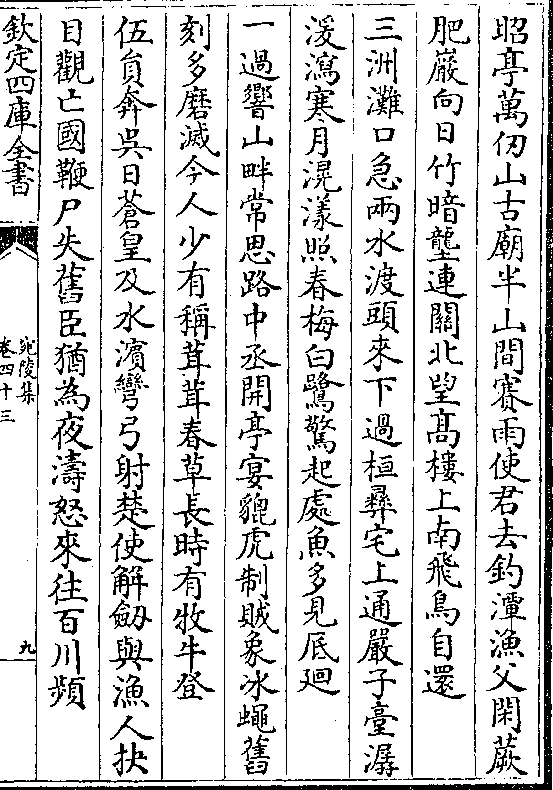 昭亭萬仞山古廟半山間賽雨使君去釣潭漁父閑蕨
肥巖向日竹暗壟連關北望髙樓上南飛鳥自還
三洲灘口急兩水渡頭來下過桓彞宅上通嚴子臺潺
湲瀉寒月滉漾照春梅白鷺驚起處魚多見底廻
一過響山畔常思路中丞開亭宴貔虎制賊象冰蠅舊
刻多磨滅今人少有稱茸茸春草長時有牧牛登
伍員奔吳日蒼皇及水濱彎弓射楚使解劒與漁人抉
目觀亡國鞭尸失舊臣猶為夜濤怒來往百川頻
欽定四庫全書
宛陵集
卷四十三
九